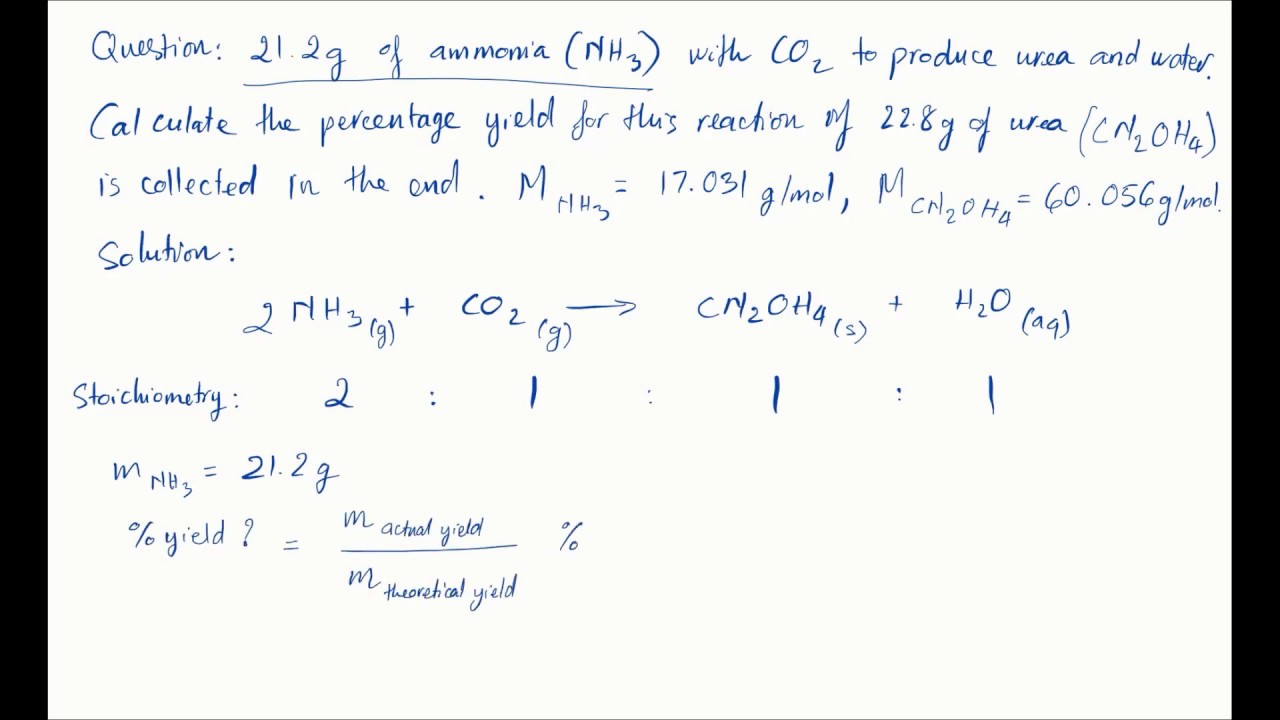 Question: 21.2g of ammonia (NH3) with CO2 to produce urea and water.
Calculate the percentage yield for this reaction if 22.8g of urea (CN2OH4)
is collected in the end. M NH3 = 17.031 g/mol, M CN2OH4 = 60.056g/mol.
Solution:
2 NH3(g) + CO2(g) → CN2OH4(s) + H2O(aq)
Stoichiometry: 2 : 1 : 1 : 1
m NH3 = 21.2g
% yield ? = m actual yield %
m theoretical yield